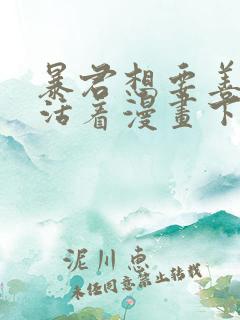 暴君想要善
活着漫畫下
泥川惠
未经同意禁止转载